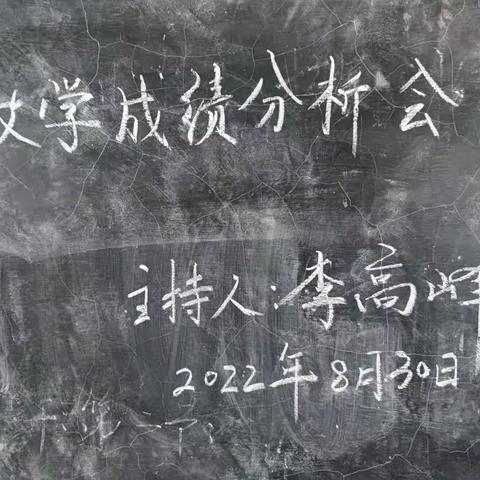 学成绩分析会
主持人:李高峰
2022年8月30日